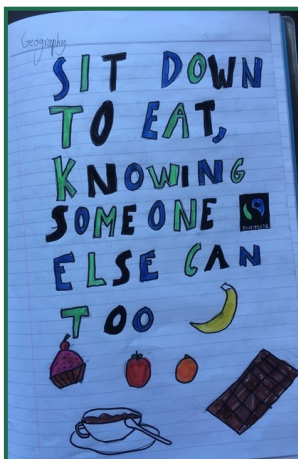 Geography
SIT DOWN
TO EAT,
KNOWING
SOMEONE
ELSE CAN
TOO